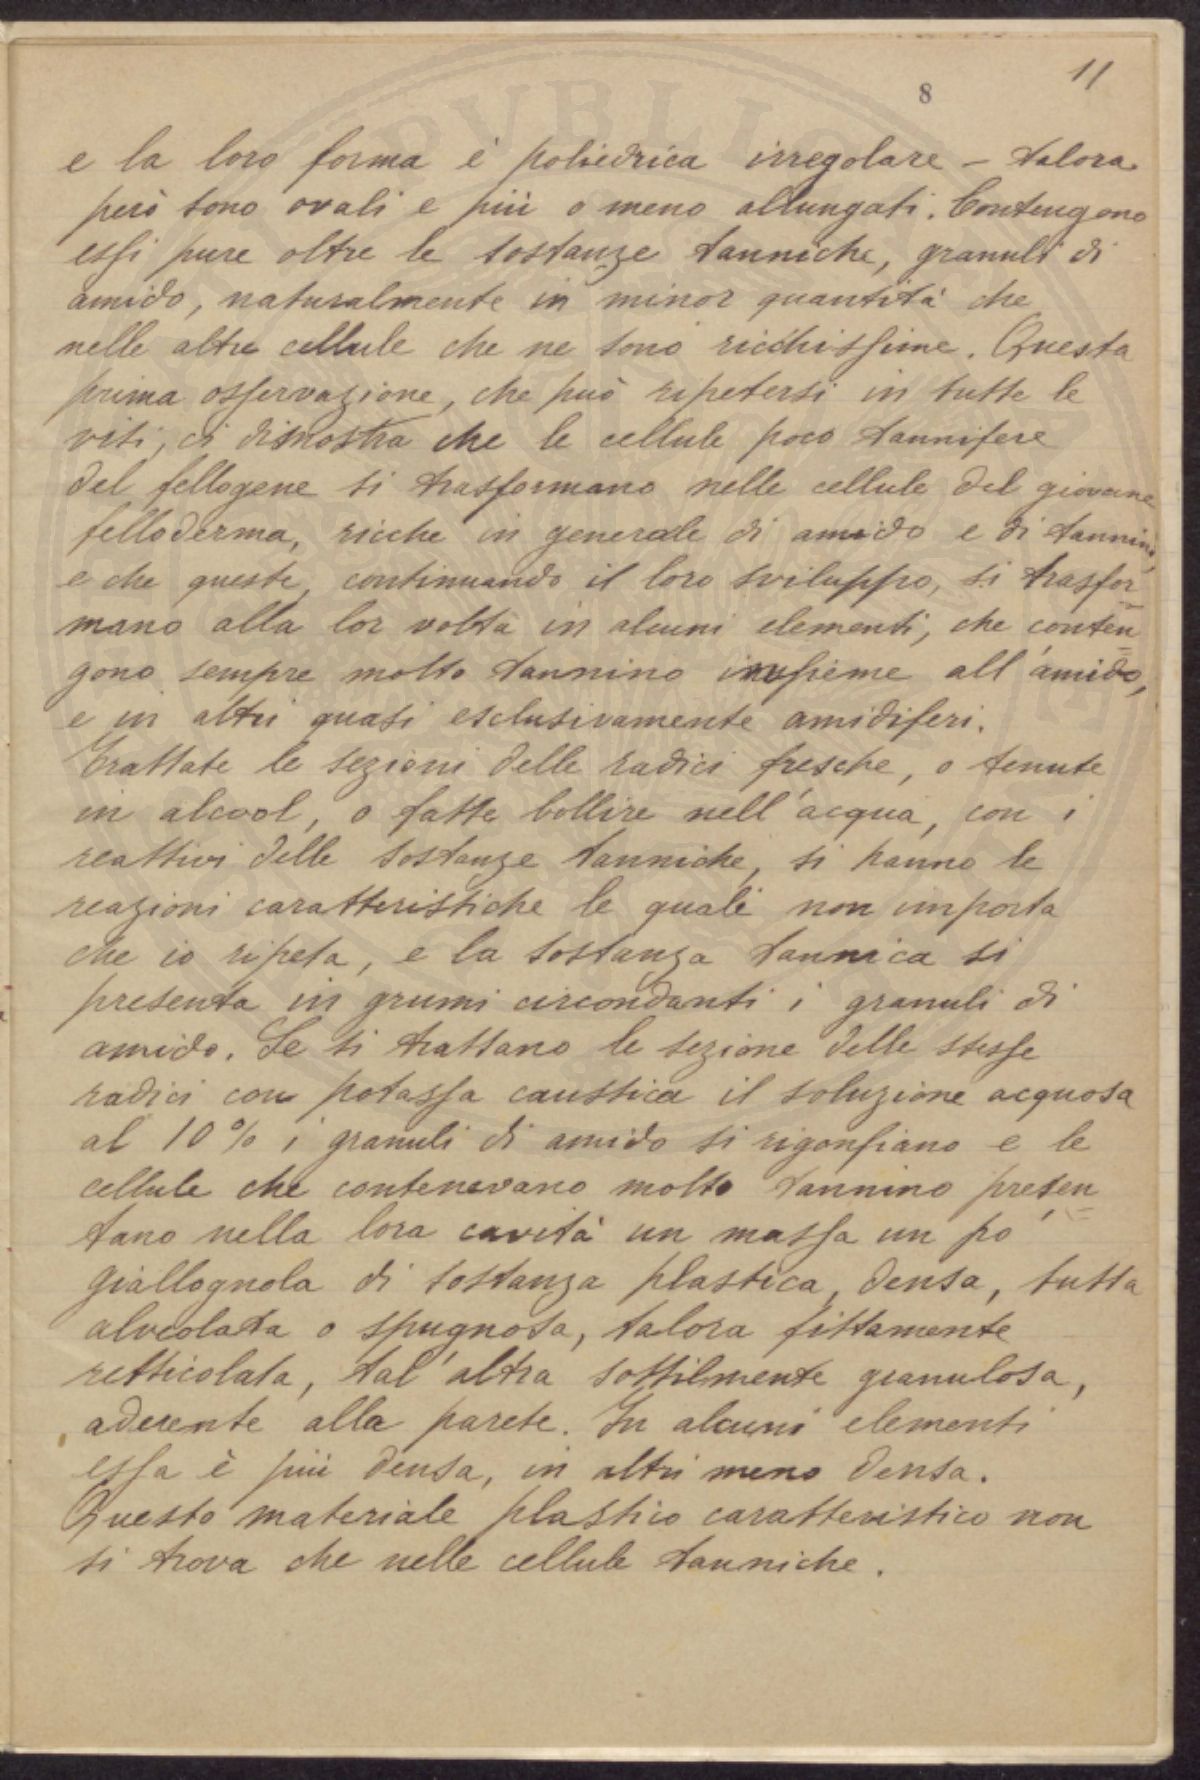 11
8
e la loro forma è poliedrica irregolare – talora
però sono ovali e più o meno allungati. Contengono
essi pure oltre le sostanze tanniche, granuli di
amido, naturalmente in minor quantità che
nelle altre cellule che ne sono ricchissime. Questa
prima osservazione, che può ripetersi in tutte le
viti, ci dimostra che le cellule poco tannifere
del fellogene si trasformano nelle cellule del giovane
felloderma, ricche in generale di amido e di tannino,
e che queste, continuando il loro sviluppo, si trasfor=
mano alla lor volta in alcuni elementi, che conten=
gono sempre molto tannino insieme all'amido,
e in altri quasi esclusivamente amidiferi.
Trattate le sezioni delle radici fresche, o tenute
in alcool, o fatte bollire nell'acqua, con i
reattivi delle sostanze tanniche, si hanno le
reazioni caratteristiche le quali non importa
che io ripeta, e la sostanza tannica si
presenta in grumi circondanti i granuli di
amido. Se si trattano le sezione delle stesse
radici con potassa caustica il soluzione acquosa
al 10% i granuli di amido si rigonfiano e le
cellule che contenevano molto tannino presen=
tano nella lora cavità un massa un po'
giallognola di sostanza plastica, densa, tutta
alveolata o spugnosa, talora fittamente
retticolata, tal'altra sottilmente granulosa,
aderente alla parete. In alcuni elementi
essa è più densa, in altri meno densa.
Questo materiale plastico caratteristico non
si trova che nelle cellule tanniche.